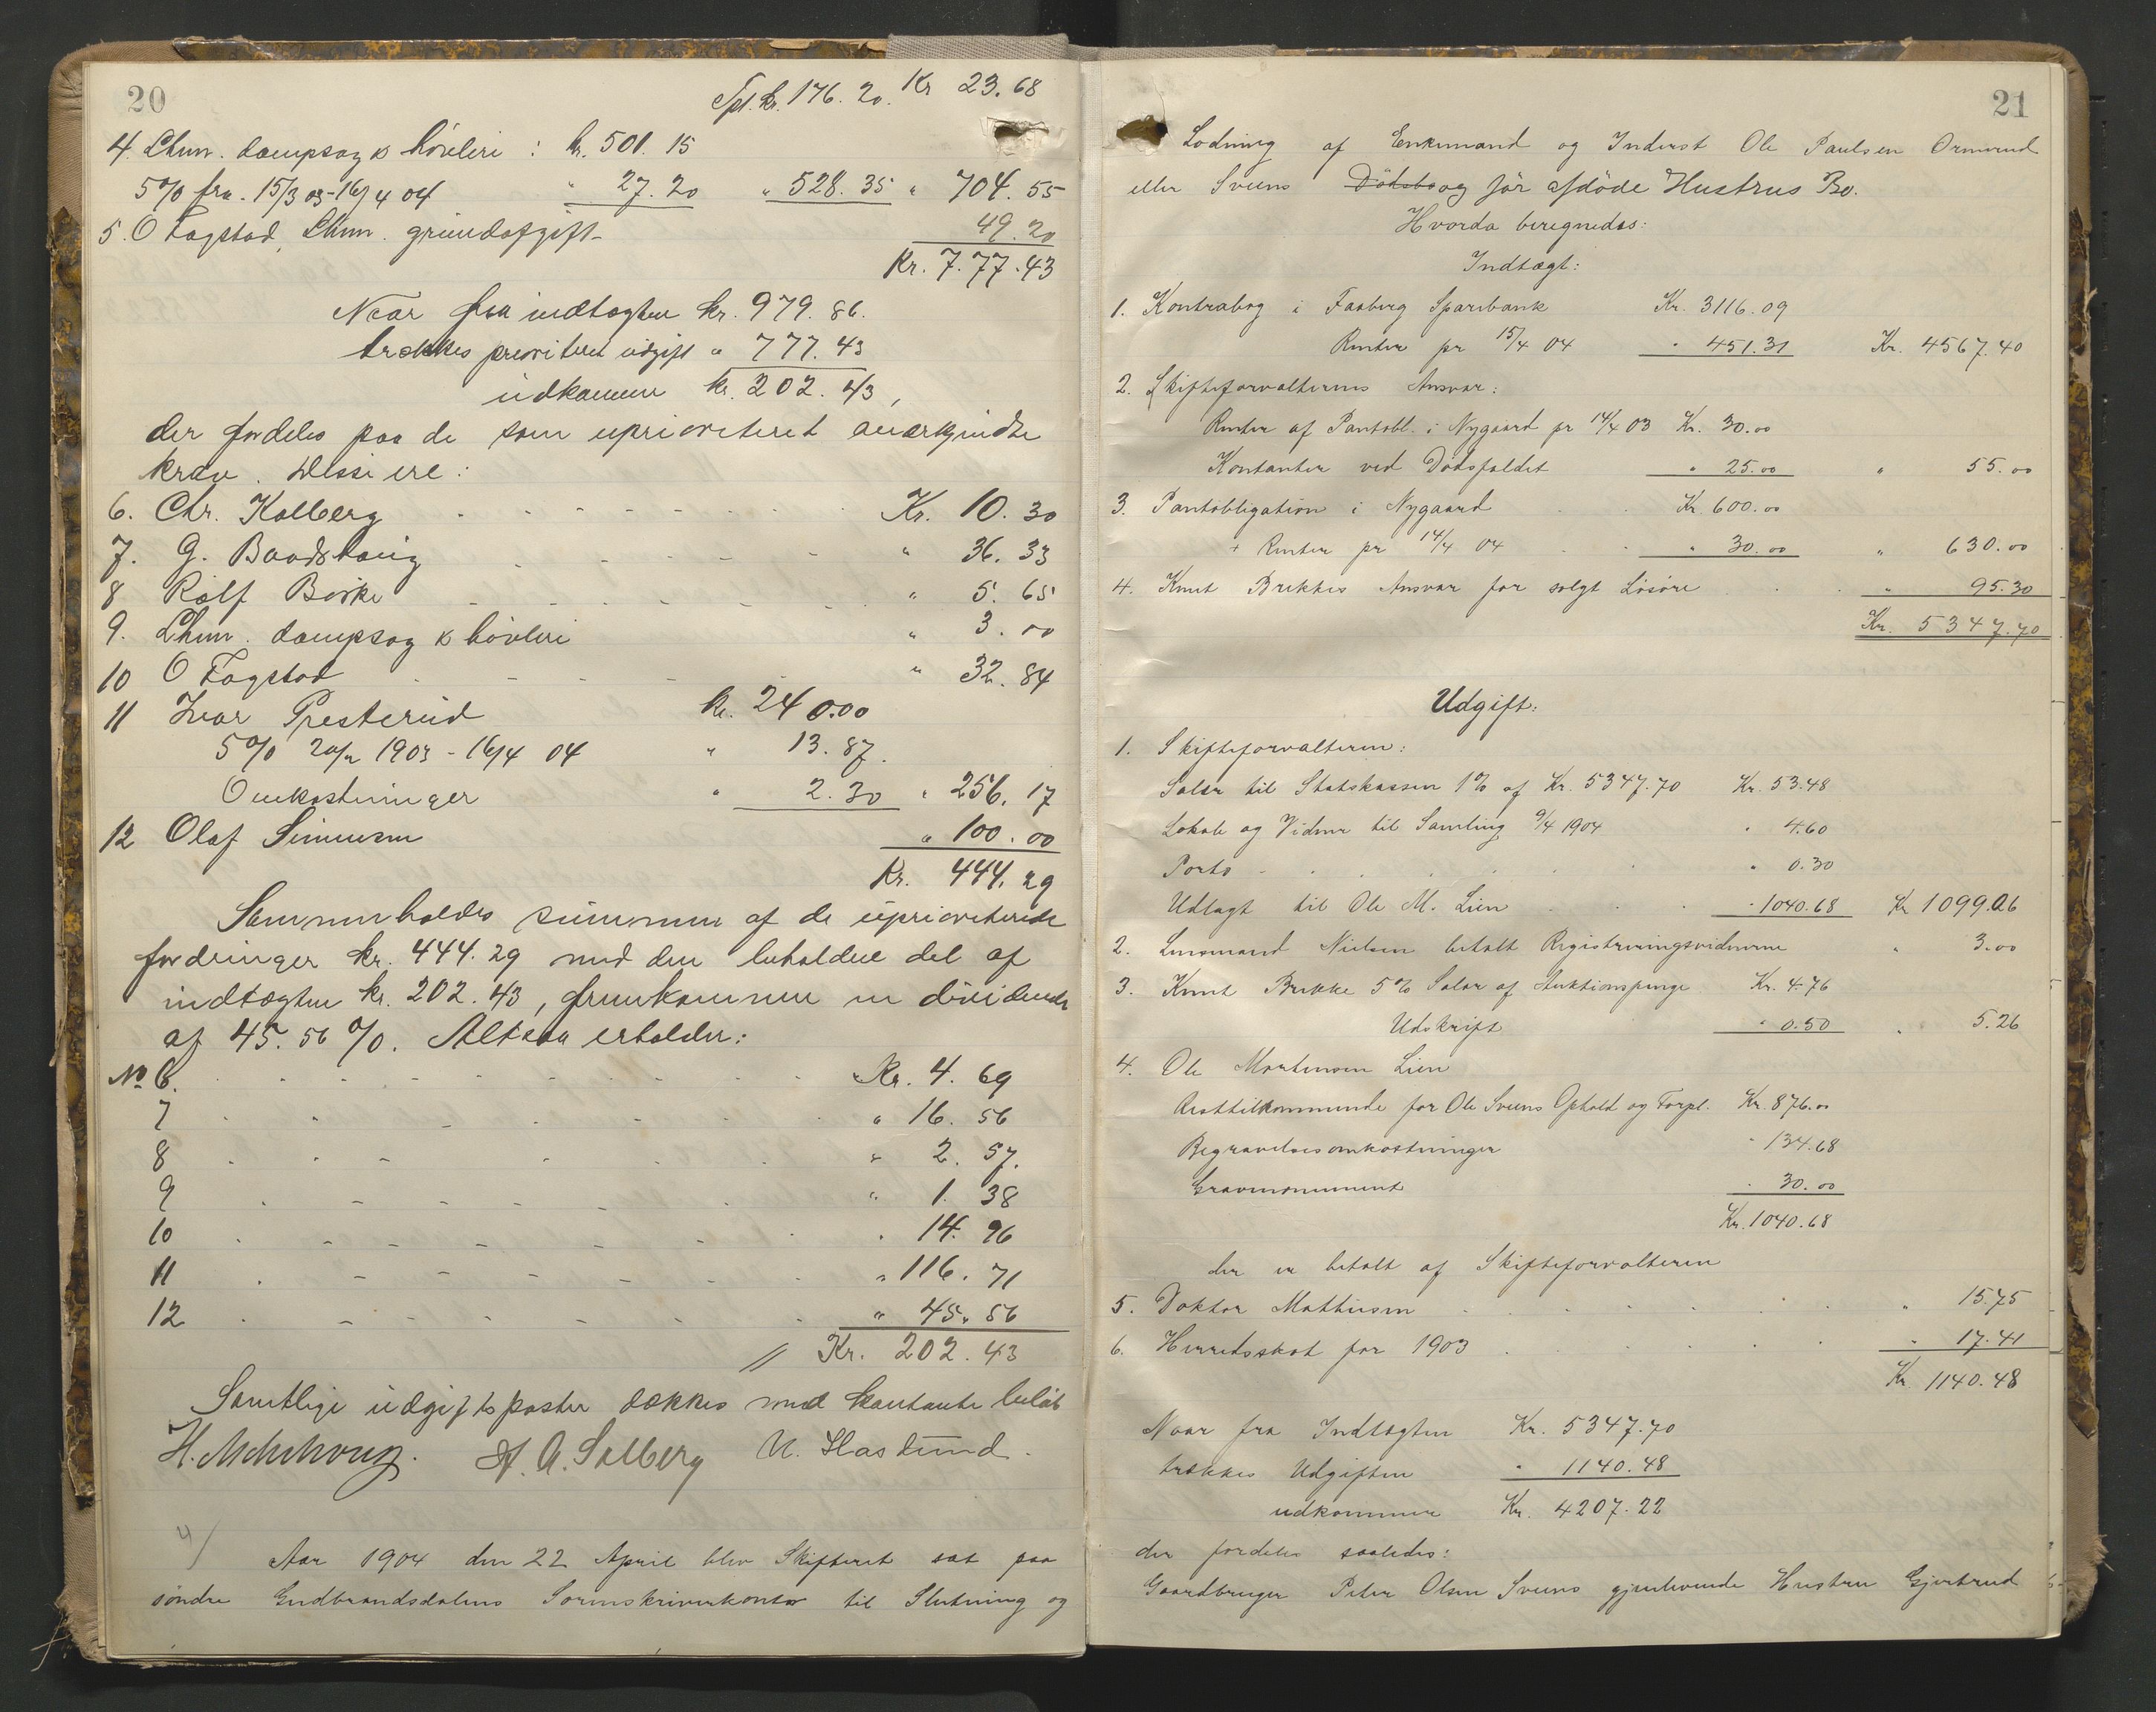 20
Spl. kr. 176. 20. Kr 23. 68
4. Lhmr. dampsag & høvleri : kr. 501. 15
5% fra. 15/3 03 - 16/4 04 " 27. 20 " 528. 35 " 704. 55
5. O Fagstad, Lhmr. grundafgift - 49. 20
Kr. 7.77.43
Naar fra indtægten kr. 979. 86.
trækkes prioriteret udgift " 777. 43
udkommer kr. 202. 43,
der fordeles paa de som uprioriteret anerkjendte
krav. Disse ere:
6. Chr. Kolberg Kr. 10. 30
7. G. Baadshaug " 36. 33
8 Rolf Birke " 5. 65
9. Lhmr. dampsag & høvleri " 3. 00
10 O Fagstad " 32. 84
11 Ivar Presterud kr. 240.00
5% 20/2 1903 - 16/4 04 " 13. 87.
Omkostninger " 2. 30 " 256. 17
12 Olaf Simensen " 100. 00
Kr. 444. 29
Sammenholdes summen af de uprioriterede
fordringer kr. 444. 29 med den beholdne del af
indtægten kr. 202. 43, fremkommer en dividende
af 45. 56 %. Altsaa erholder:
No 6. Kr. 4. 69
7 " 16. 56
8 " 2. 57.
9 " 1. 38
10 " 14. 96
11 " 116. 71
12 " 45. 56
// Kr. 202. 43
Samtlige udgiftsposter dækkes med kontante beløb
A. Solberg N. Haslund.
4/ Aar 1904 den 22 April blev Skifteret sat paa
søndre Gudbrandsdalens Sorenskriverkontor til Slutning og
21
Lodning af Enkemand og Inderst Ole Paulsen Ormrud
eller Sveens Dødsbo og før afdøde Hustrus Bo.
Hvorda beregnedes:
Indtægt:
1. Kontrabog i Faaberg Sparebank Kr. 3116.09
Renter pr 15/4 04 " 451.31 Kr. 4567.40
2. Skifteforvalterens Ansvar:
Renter af Pantobl. i Nygaard pr 14/4 03 Kr. 30.00
Kontanter ved Dødsfaldet " 25.00 " 55.00
3. Pantobligation i Nygaard Kr. 600.00
+ Renter pr 14/4 04 " 30.00 " 630.00
4. Knut Brekkes Ansvar for solgt Løsøre " 95.30
Kr. 5347.70
Udgift:
1. Skifteforvalteren:
Salær til Statskassen 1% af Kr. 5347.70 Kr. 53.48
Lokale og Vidner til Samling 9/4 1904 " 4.60
Porto " 0.30
Udlagt til Ole M. Lien " 1040.68 Kr 1099.06
2. Lensmand Nielsen betalt Registreringsvidnerne " 3.00
3. Knut Brekke 5% Salær af Auktionspenge Kr. 4.76
Udskrift " 0.50 " 5.26
4. Ole Mortensen Lien
Resttilkommende for Ole Sveens Ophold og Forpl. Kr. 876.00
Begravelsesomkostninger " 134.68
Gravmonument " 30.00
Kr. 1040.68
der er betalt af Skifteforvalteren
5. Doktor Mathiesen " 15.75
6. Herredsskat for 1903 " 17.41
Kr 1140.48
Naar fra Indtægten Kr. 5347.70
trækkes Udgiften " 1140.48
udkommer Kr. 4207.22
der fordeles saaledes:
Gaardbruger Peter Olsen Sveens gjenlevende Hustru Gjertrud